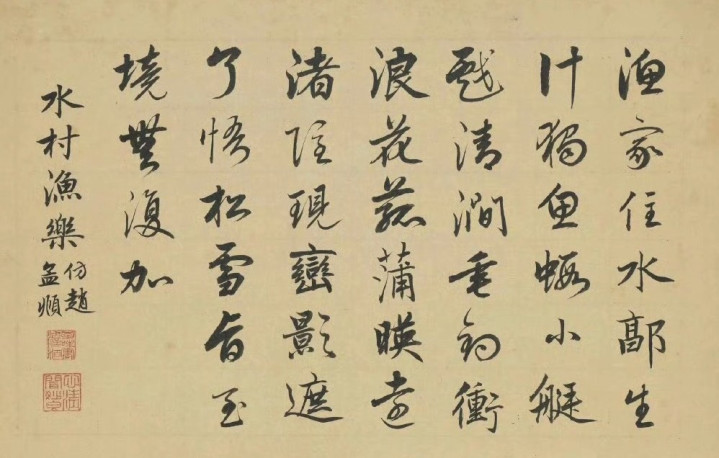 漁家住水鄉生
計獨魚蝦小艇
戲清澗垂釣衝
浪花菰蒲暎遠
渚隱現巒影遮
了悟松雪旨至
境無復加
水村漁樂
仿趙
孟頫